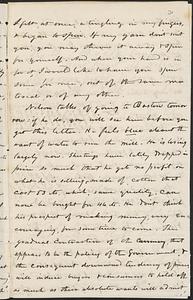 felt at once, a tingling in my fingers,
& began to spin. If my yarn don't suit
you, you may throw it away & spin
for yourself. And when your hand is in
for it I would like to have you spin
some for me, out of the same ma-
terial as of my own.
Nelson talks of going to Boston tomor-
row; if he do, you will see him before you
get this letter. He feels blue about the
want of water to run the mill. He is losing
largely now. Sheetings have lately dropped in
price so much that he gets no profit on
what he is selling, made of cotton that
cost cts, while same quality, can
now be bought for cts. He don't think
his prospect of making money, very en-
couraging, for some time to come. The
gradual contraction of the currency that
appears to be the policy of the government, &
the consequent downward tendency of prices
will induce buyers to
as much as their absolute wants will admit,